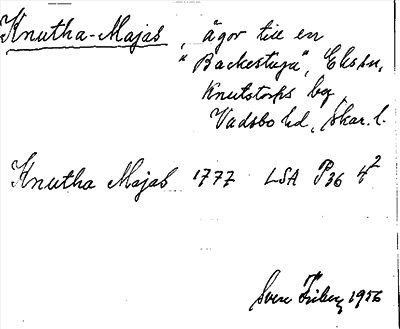 Knutha-Majas, ägor till en
"Backestuga", Eksn,
Knutstorps by,
Vadsbo hd, Skar. l.
Knutha Majas 1777 LSA P36 4²
Sven Friberg 1956